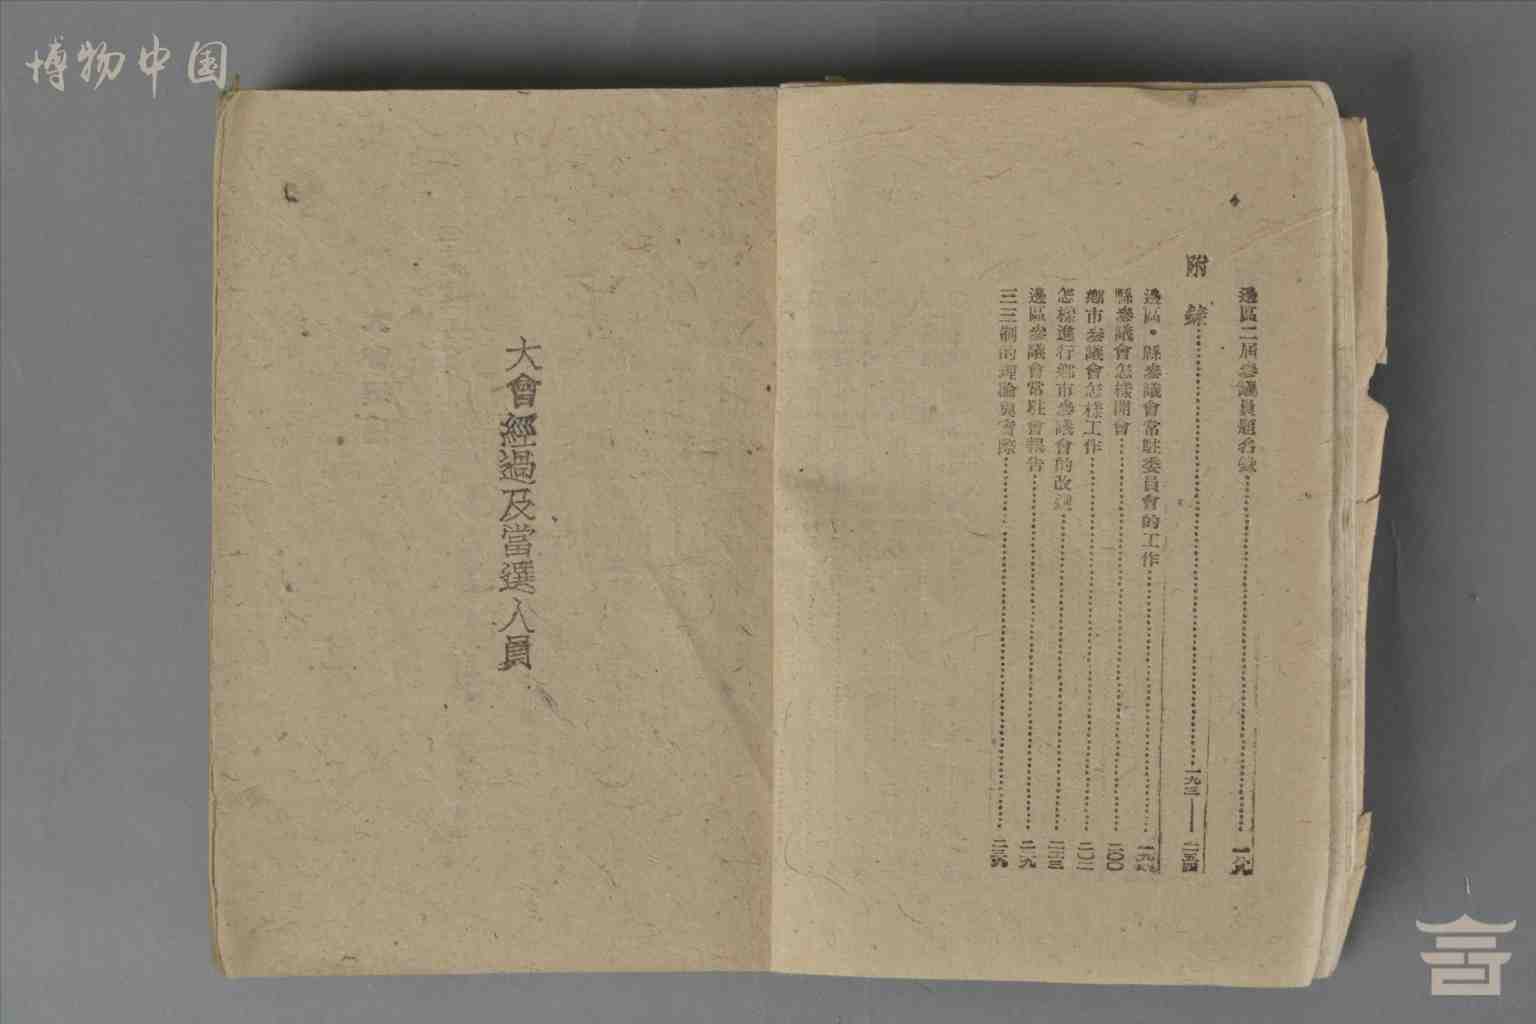 博物中国
邊區二屆參議員題名錄……一八九
附 錄……一九三——二五四
邊區·縣參議會常駐委員會的工作
縣參議會怎樣開會……二〇〇
鄉市參議會怎樣工作……二〇三
怎樣進行鄉市參議會的改選
邊區參議會常駐會報告
三三制的理論與實際
大會經過及當選人員